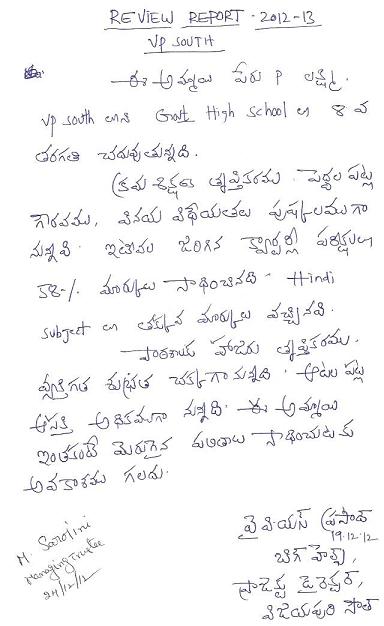 REVIEW REPORT - 2012-13
VP SOUTH
ఈ అమ్మాయి పేరు P లక్ష్మి.
VP South లోని Govt High School లో 8 వ
తరగతి చదువుతున్నది.
క్రమ శిక్షణ తృప్తికరము. పెద్దల పట్ల
గౌరవము, వినయ విధేయతలు పుష్కలముగా
నున్నవి. ఇటీవల జరిగిన క్వార్టర్లీ పరీక్షలు
58-/. మార్కులు సాధించినది - Hindi
subject లో తక్కువ మార్కులు వచ్చినవి.
పాఠశాల హాజరు తృప్తికరము.
వ్యక్తిగత శుభ్రత చక్కగానున్నది. ఆటల పట్ల
ఆసక్తి అధికముగా నున్నది. ఈ అమ్మాయి
ఇంతకంటే మెరుగైన ఫలితాలు సాధించుటకు
అవకాశము గలదు.
వై పి యస్ ప్రసాద్
19.12.12
బిగ్ హెల్ప్,
ప్రాజెక్ట్ డైరెక్టర్,
విజయపురి సౌత్
M. Sarojini
Managing Trustee
24/12/12